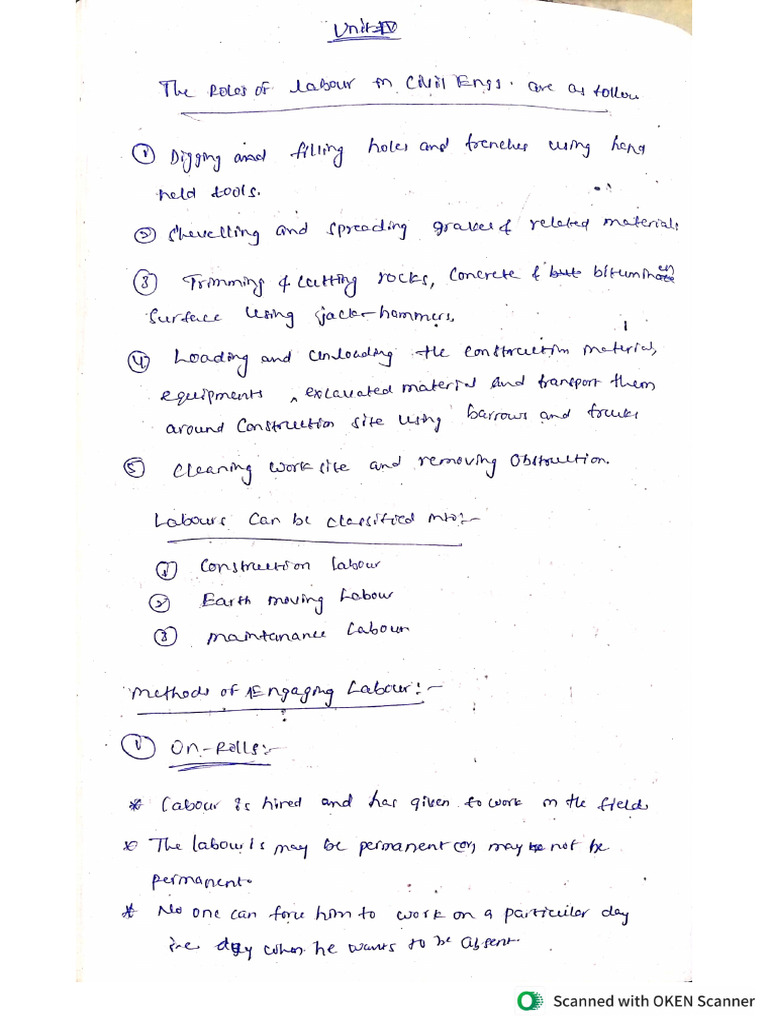 Unit-IV
The Roles of Labour in Civil Engg. are as follow
① Digging and filling holes and trenches using hand
held tools.
② Shevelling and spreading gravel & related materials
③ Trimming & cutting rocks, concrete & bituminous
Surface using jack-hammers,
④ Loading and unloading the construction material,
equipments, excavated material and transport them
around construction site using barrows and trucks
⑤ Cleaning work site and removing Obstruction.
Labours Can be classified into:-
① Construction labour
② Earth moving Labour
③ maintanance Labour
Methods of Engaging Labour:-
① On-Rolls:-
* Labour is hired and has given to work on the field
* The labour is may be permanent (or) may be not be
permanent.
* No one can force him to work on a particular day
i.e. day when he wants to be absent.
Scanned with OKEN Scanner